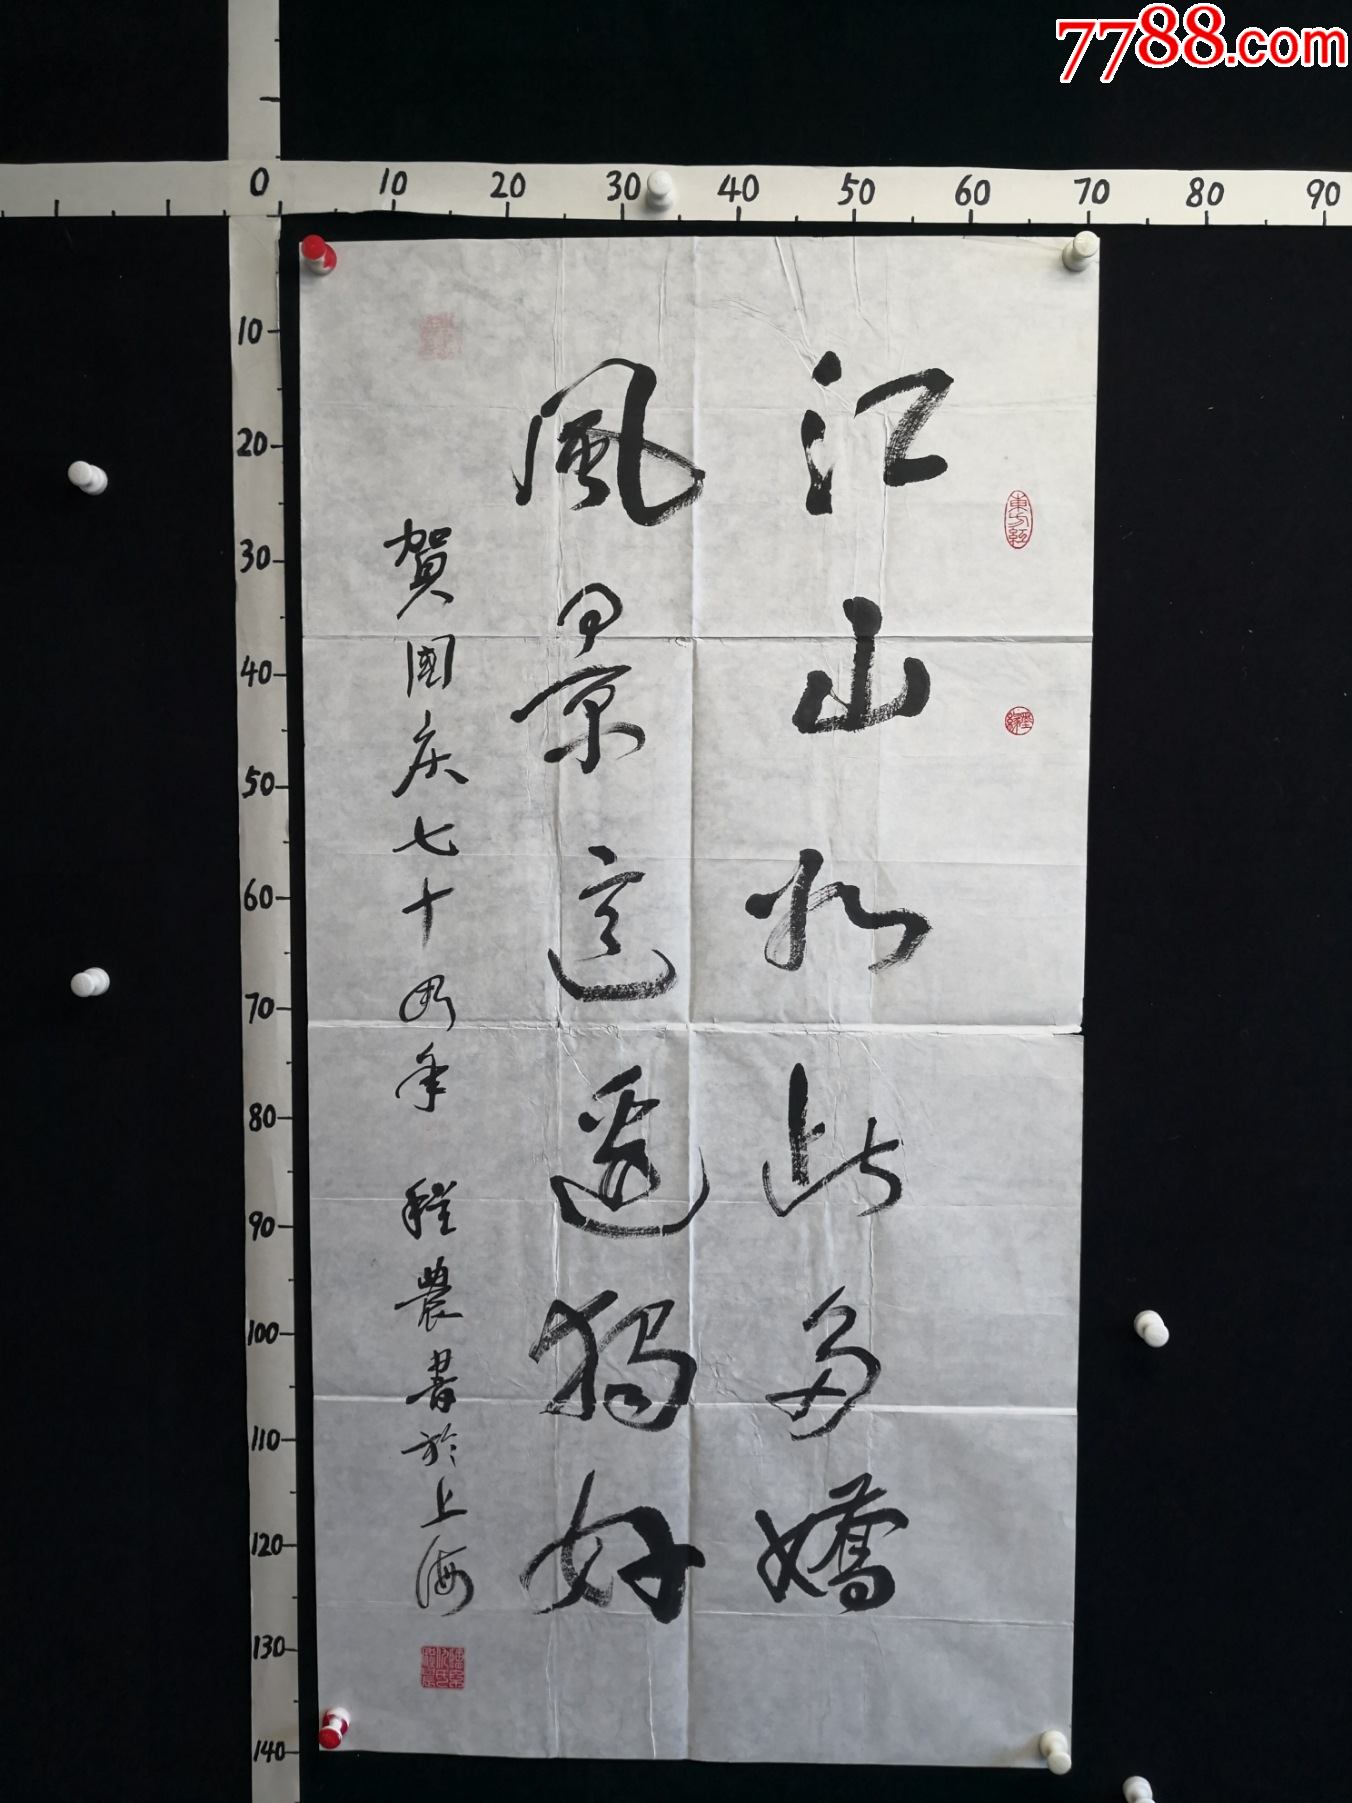 7788.com
0 10 20 30 40 50 60 70 80 90
10
20
30
40
50
60
70
80
90
100
110
120
130
140
江山如此多嬌
風景這邊獨好
賀國庆七十四年 程農書於上海
東方紅